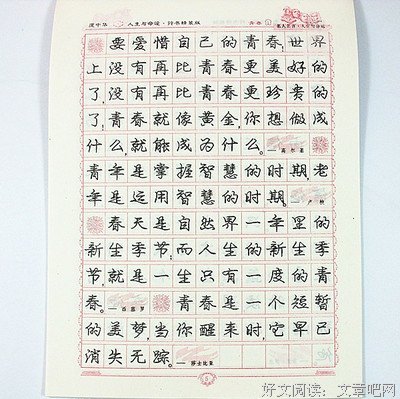 庞中华 人生与命运·行书精装版 青春
名人名言·人生与命运
要爱惜自己的青春，世界
上没有再比青春更美好的
了，没有再比青春更珍贵的
了，青春就像黄金，你想做成
什么，就能成为什么。——高尔基
青年是掌握智慧的时期，老
年是运用智慧的时期。——卢梭
春天是自然界一年里的
新生季节，而人生的新生季
节，就是一生只有一度的青
春。——西塞罗 青春是一个短暂
的美梦，当你醒来时，它早已
消失无踪。——莎士比亚
好文阅读：文章吧网